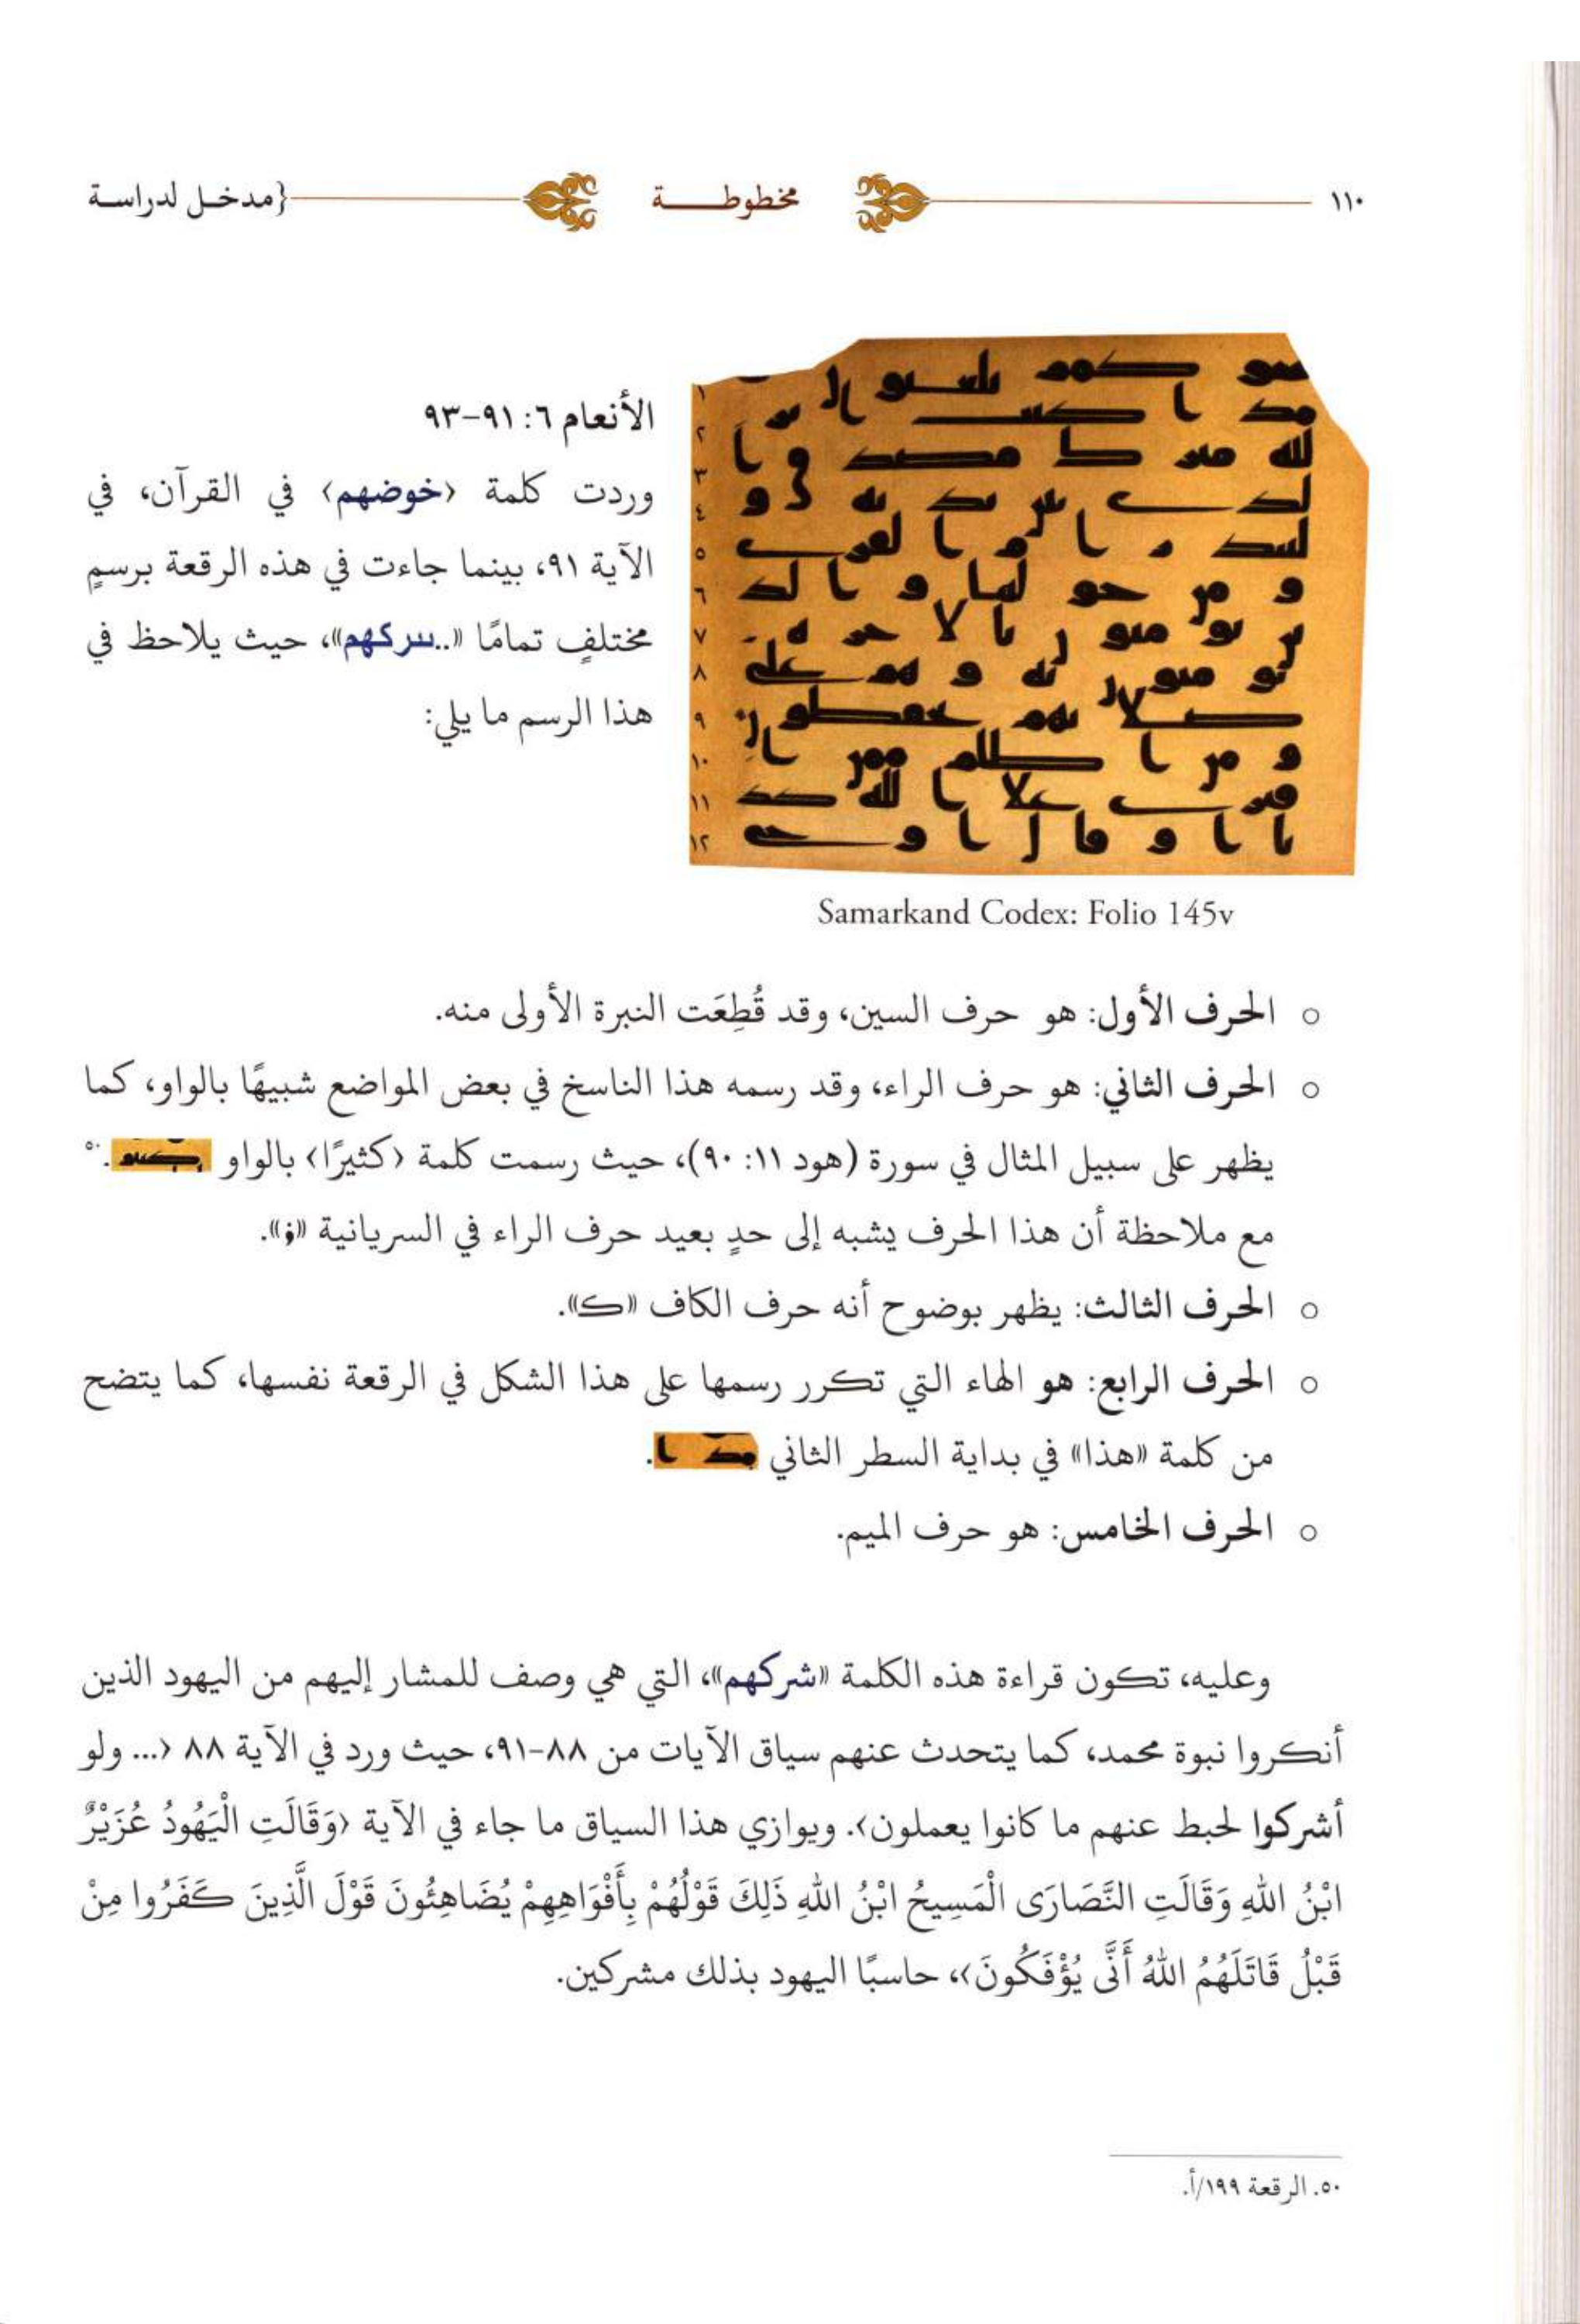 ١١٠ مخطوطة {مدخل لدراسة
الأنعام ٦: ٩١-٩٣
وردت كلمة ‹خوضهم› في القرآن، في
الآية ٩١، بينما جاءت في هذه الرقعة برسمٍ
مختلفٍ تمامًا «..سركهم»، حيث يلاحظ في
هذا الرسم ما يلي:
١
٢
٣
٤
٥
٦
٧
٨
٩
١٠
١١
١٢
Samarkand Codex: Folio 145v
○ الحرف الأول: هو حرف السين، وقد قُطِعَت النبرة الأولى منه.
○ الحرف الثاني: هو حرف الراء، وقد رسمه هذا الناسخ في بعض المواضع شبيهًا بالواو، كما
يظهر على سبيل المثال في سورة (هود ١١: ٩٠)، حيث رسمت كلمة ‹كثيرًا› بالواو .٥٠
مع ملاحظة أن هذا الحرف يشبه إلى حدٍ بعيد حرف الراء في السريانية «ܪ».
○ الحرف الثالث: يظهر بوضوح أنه حرف الكاف «ك».
○ الحرف الرابع: هو الهاء التي تكرر رسمها على هذا الشكل في الرقعة نفسها، كما يتضح
من كلمة «هذا» في بداية السطر الثاني .
○ الحرف الخامس: هو حرف الميم.
وعليه، تكون قراءة هذه الكلمة «شركهم»، التي هي وصف للمشار إليهم من اليهود الذين
أنكروا نبوة محمد، كما يتحدث عنهم سياق الآيات من ٨٨-٩١، حيث ورد في الآية ٨٨ ‹... ولو
أشركوا لحبط عنهم ما كانوا يعملون›. ويوازي هذا السياق ما جاء في الآية ‹وَقَالَتِ الْيَهُودُ عُزَيْرٌ
ابْنُ اللهِ وَقَالَتِ النَّصَارَى الْمَسِيحُ ابْنُ اللهِ ذَلِكَ قَوْلُهُمْ بِأَفْوَاهِهِمْ يُضَاهِئُونَ قَوْلَ الَّذِينَ كَفَرُوا مِنْ
قَبْلُ قَاتَلَهُمُ اللهُ أَنَّى يُؤْفَكُونَ›، حاسبًا اليهود بذلك مشركين.
٥٠. الرقعة ١٩٩/أ.